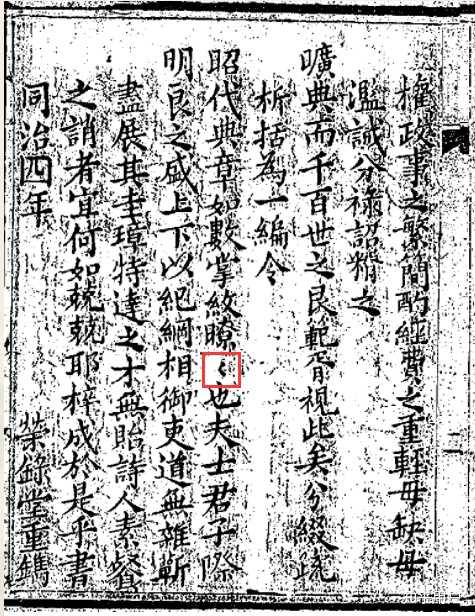 權政事之繁簡酌經費之重輕毋缺毋
濫誠分祿詔糈之
曠典而千百世之良範胥視此矣分綴疏
析括為一編令
昭代典章如數掌紋瞭〻也夫士君子際
明良之盛上下以紀綱相御吏道無雜靳
盡展其圭璋特達之才無貽詩人素餐
之誚者宜何如兢兢耶梓成於是乎書
同治四年 榮錄堂重鐫
二